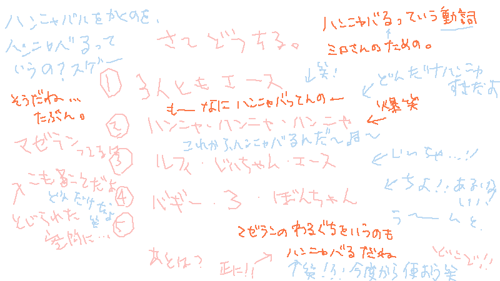 ハンニャバルをかくのを、
ハンニャバるって
いうの？スゲー
さてどうする。
ハンニャバるっていう動詞
ミロさんのための。
① 3人ともエース
←笑！
どんだけハンニャ
すきだよ
そうだね…
たぶん。
も〜なにハンニャバってんの〜
爆笑
② ハンニャ・ハンニャ・ハンニャ
これからハンニャバるんだ〜
マゼラン
③ ルフィ・じいちゃん・エース
←じいちゃ…!!
④ バギー・3・ぼんちゃん
←ちょ!!
とじられた
空間に…
⑤
う〜んと、
マゼランのわるぐちをいうのも
ハンニャバるだね
あとは？ 正に!!
↑笑!!今度から使おう笑